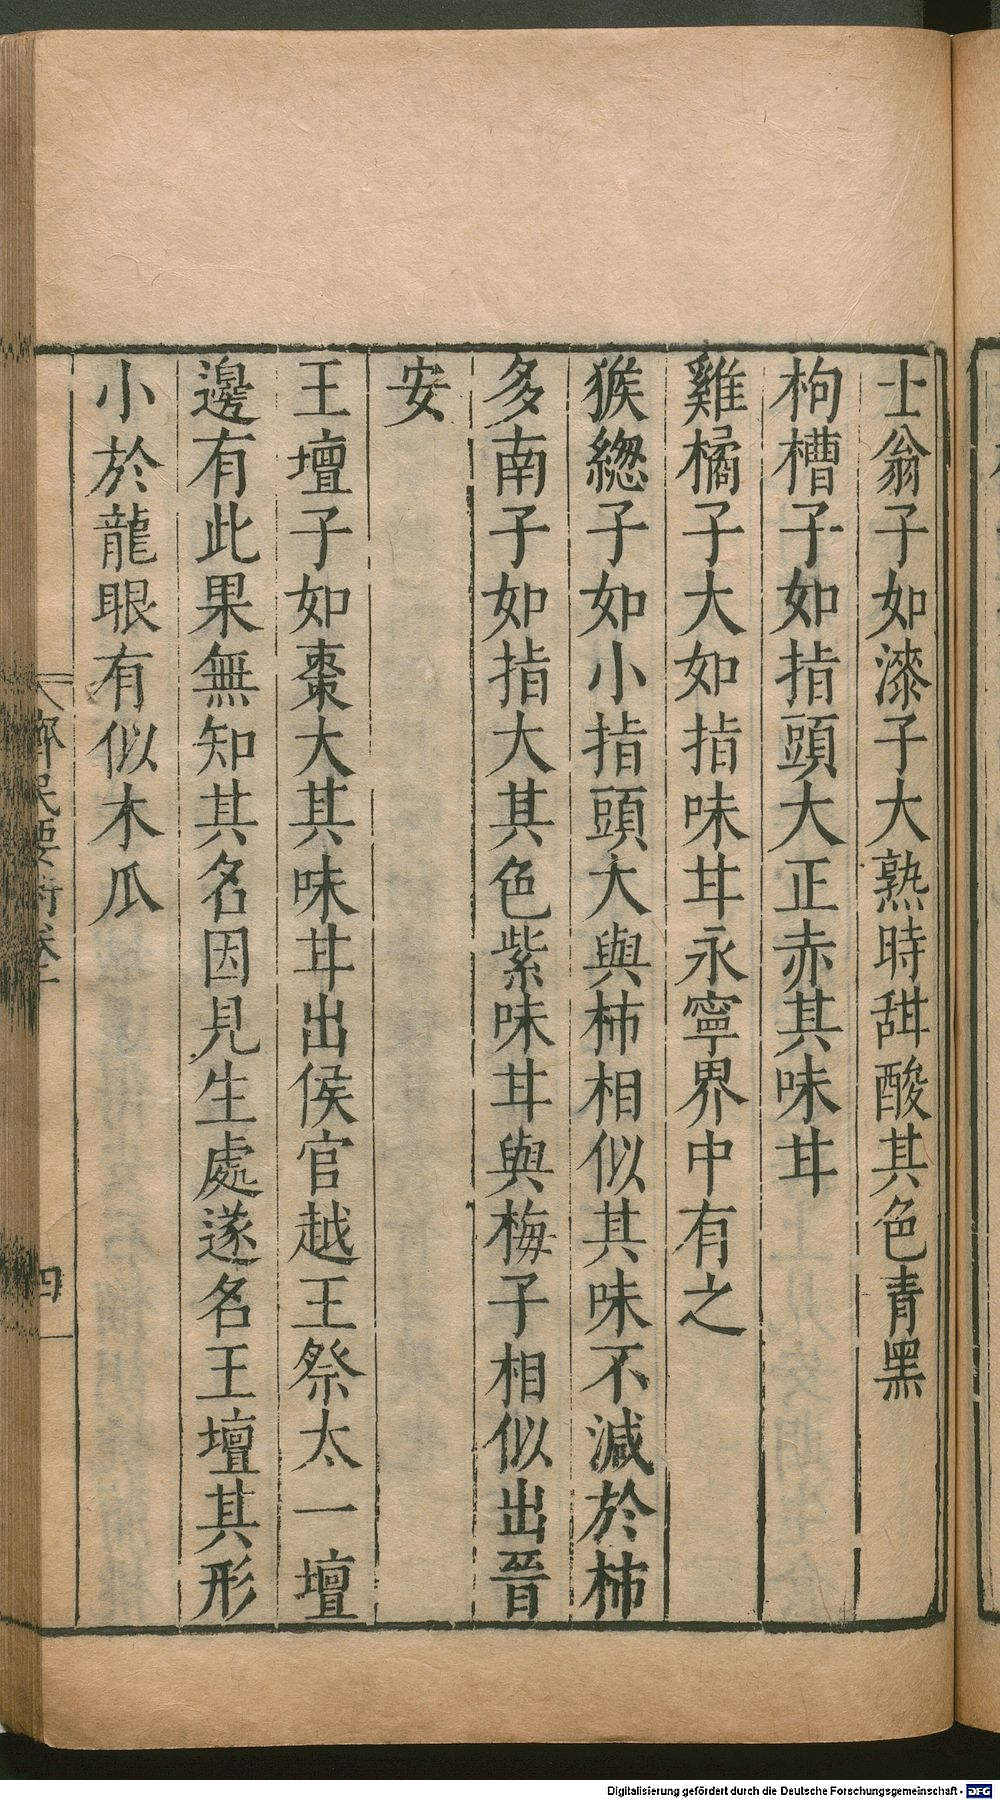 士翁子如漆子大熟時甜酸其色青黑
枸槽子如指頭大正赤其味甘
雞橘子大如指味甘永寧界中有之
猴緫子如小指頭大與柿相似其味不減於柿
多南子如指大其色紫味甘與梅子相似出晉
安
王壇子如棗大其味甘出侯官越王祭太一壇
邊有此果無知其名因見生處遂名王壇其形
小於龍眼有似木瓜
齊民要術卷十
四
Digitalisierung gefördert durch die Deutsche Forschungsgemeinschaft - DFG